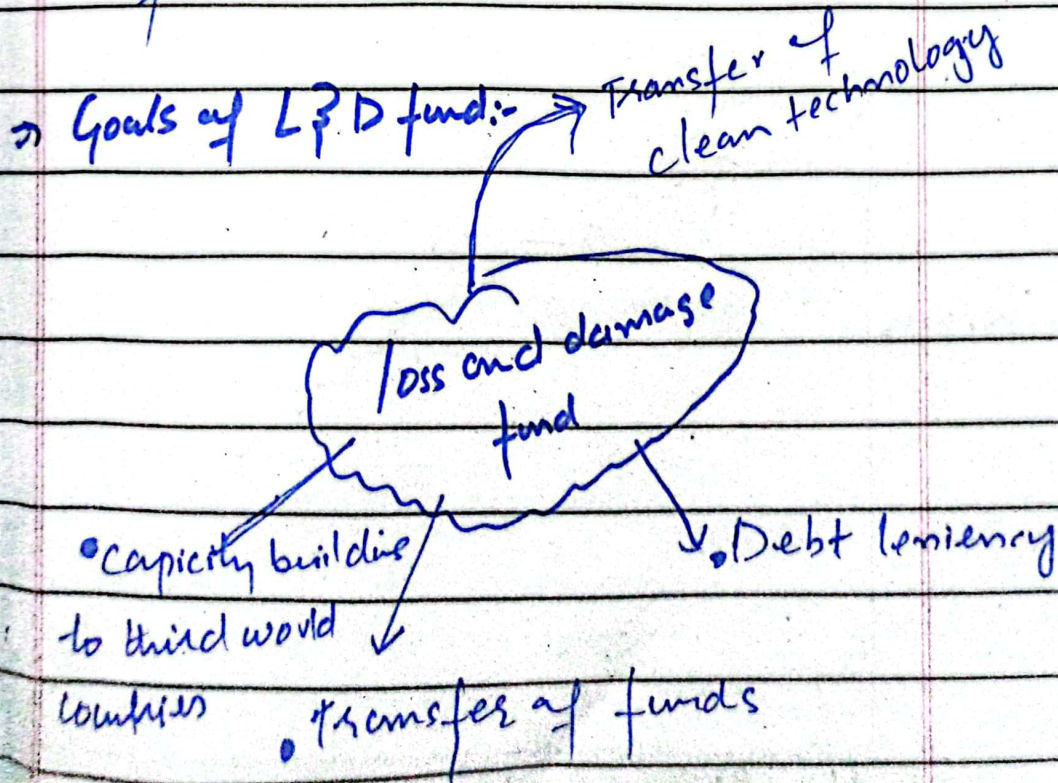 ⇒ Goals of L & D fund:-
Transfer of
clean technology
loss and damage
fund
• Capicity buildig
to third world
countries
• Debt leniency
• Transfer of funds